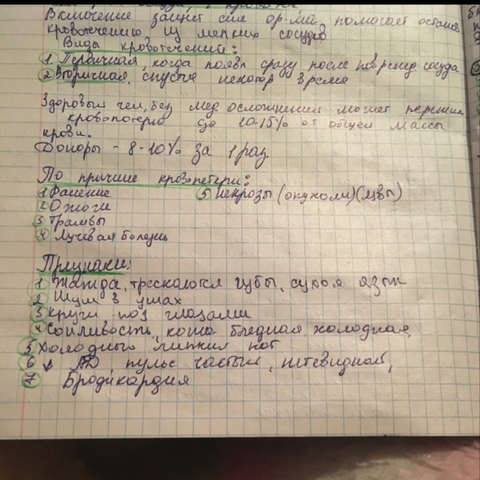 Включение защит. сил ор-ма, помогает остан.
кровотечению из мелких сосудов
Виды кровотечений:
1 Первичная, когда появл. сразу после поврежд. сосуда
2 Вторичная, спустя некотор. время
Здоровый чел, без мед. осложнений может перенести
кровопотерю до 10-15% от общей массы
крови.
Доноры - 8-10% за 1 раз
По причине кровопотери:
1 Ранение 5 Некрозы (опухоли) (язвы)
2 Ожоги
3 Травмы
4 Лучевая болезнь
Признаки:
1 Жажда, трескаются губы, сухой язык
2 Шум в ушах
3 круги под глазами
4 Сонливость, кожа бледная, холодная
5 Холодный липкий пот
6 ↓ АД, пульс частый, нитевидный,
7 Бродикардия